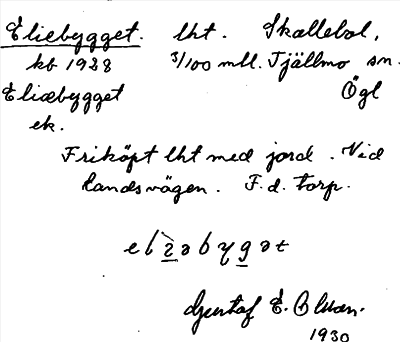 Eliebygget. lht. Skallebol,
kb 1928 3/100 mtl. Tjällmo sn.
Eliæbygget Ögl
ek.
Friköpt lht med jord. Vid
landsvägen. F.d. torp.
Gustaf E.
1930